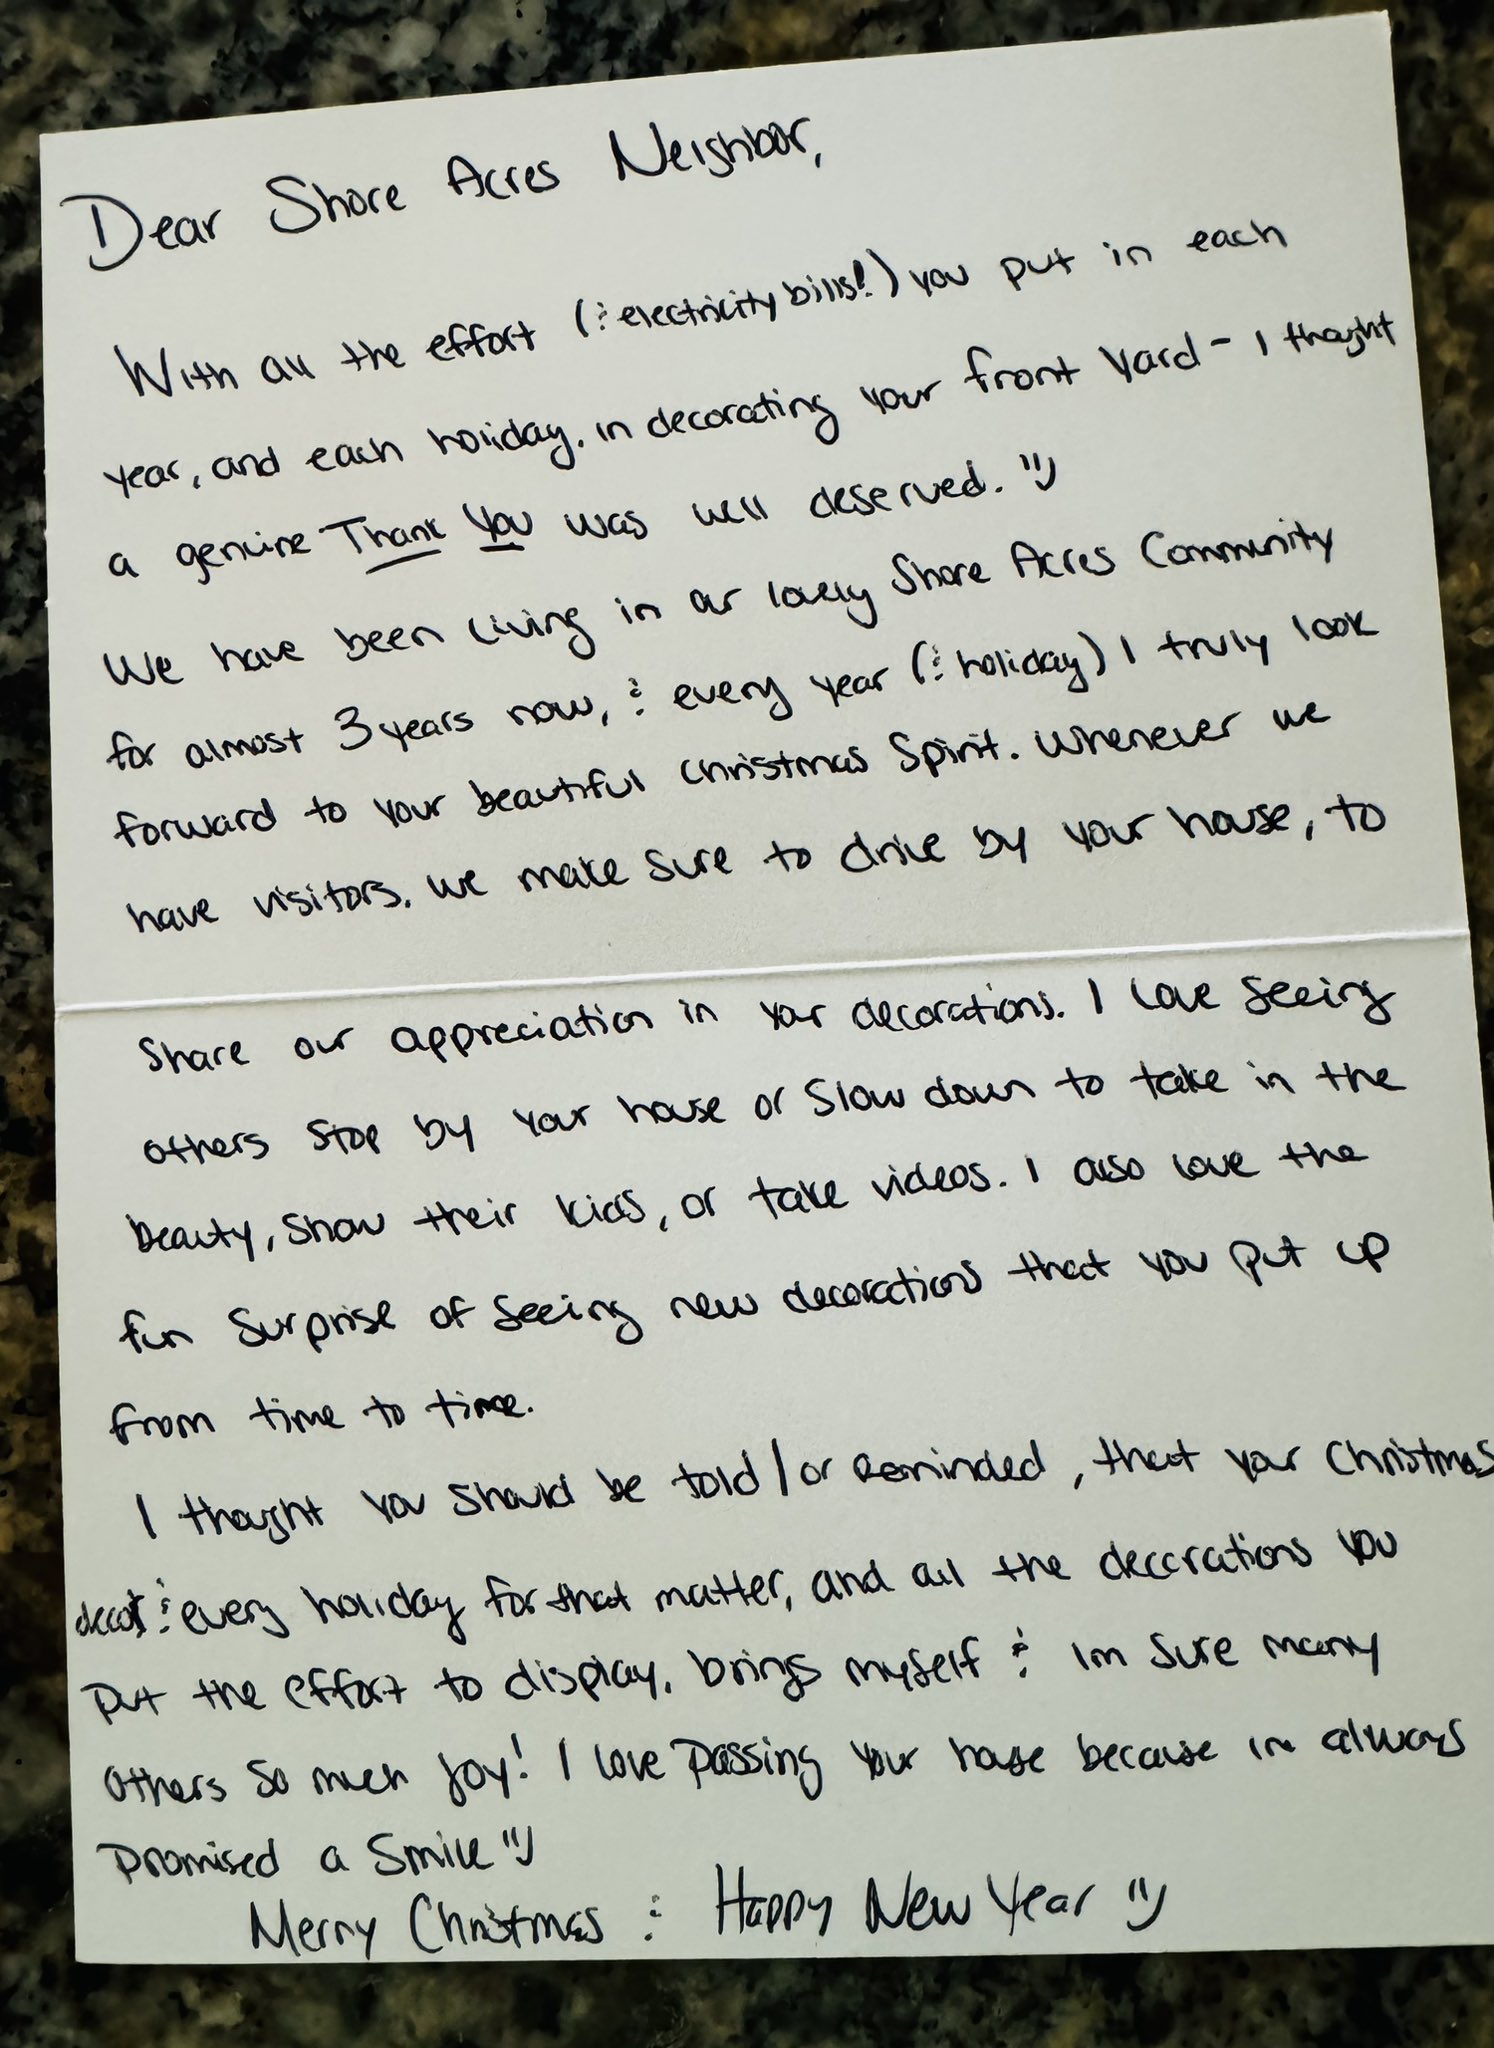 Dear Shore Acres Neighbor,
With all the effort (& electricity bills!) you put in each
year, and each holiday, in decorating your front yard - I thought
a genuine Thank You was well deserved. :)
We have been living in our lovely Shore Acres Community
for almost 3 years now, & every year (& holiday) I truly look
forward to your beautiful Christmas Spirit. Whenever we
have visitors, we make sure to drive by your house, to
share our appreciation in your decorations. I love seeing
others stop by your house or slow down to take in the
beauty, show their kids, or take videos. I also love the
fun surprise of seeing new decorations that you put up
from time to time.
I thought you should be told/or reminded, that your Christmas
decor & every holiday for that matter, and all the decorations you
put the effort to display, brings myself & Im sure many
others so much joy! I love passing your house because im always
promised a smile :)
Merry Christmas & Happy New Year :)